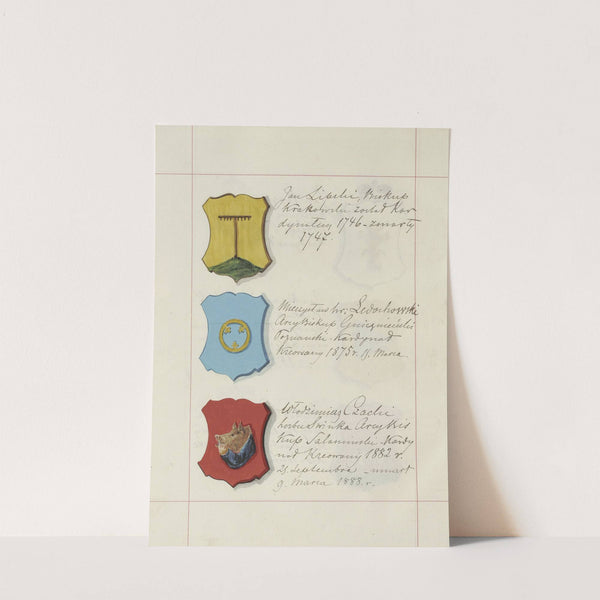 Jan Lipski, Biskup
Krakowski został Kar
dynałem 1746 – zmarły
1747.
Mieczysław hr. Ledochowski
ArcyBiskup Gnieznieński
Poznański Kardynał
Kreowany 1875 r. 9. Marca
Włodzimierz Czacki
herbu Swinka ArcyBis
Kup Salaminski Kardy
nał Kreowany 1882 r.
25 Septembra – umarł
9. Marca 1888. r.